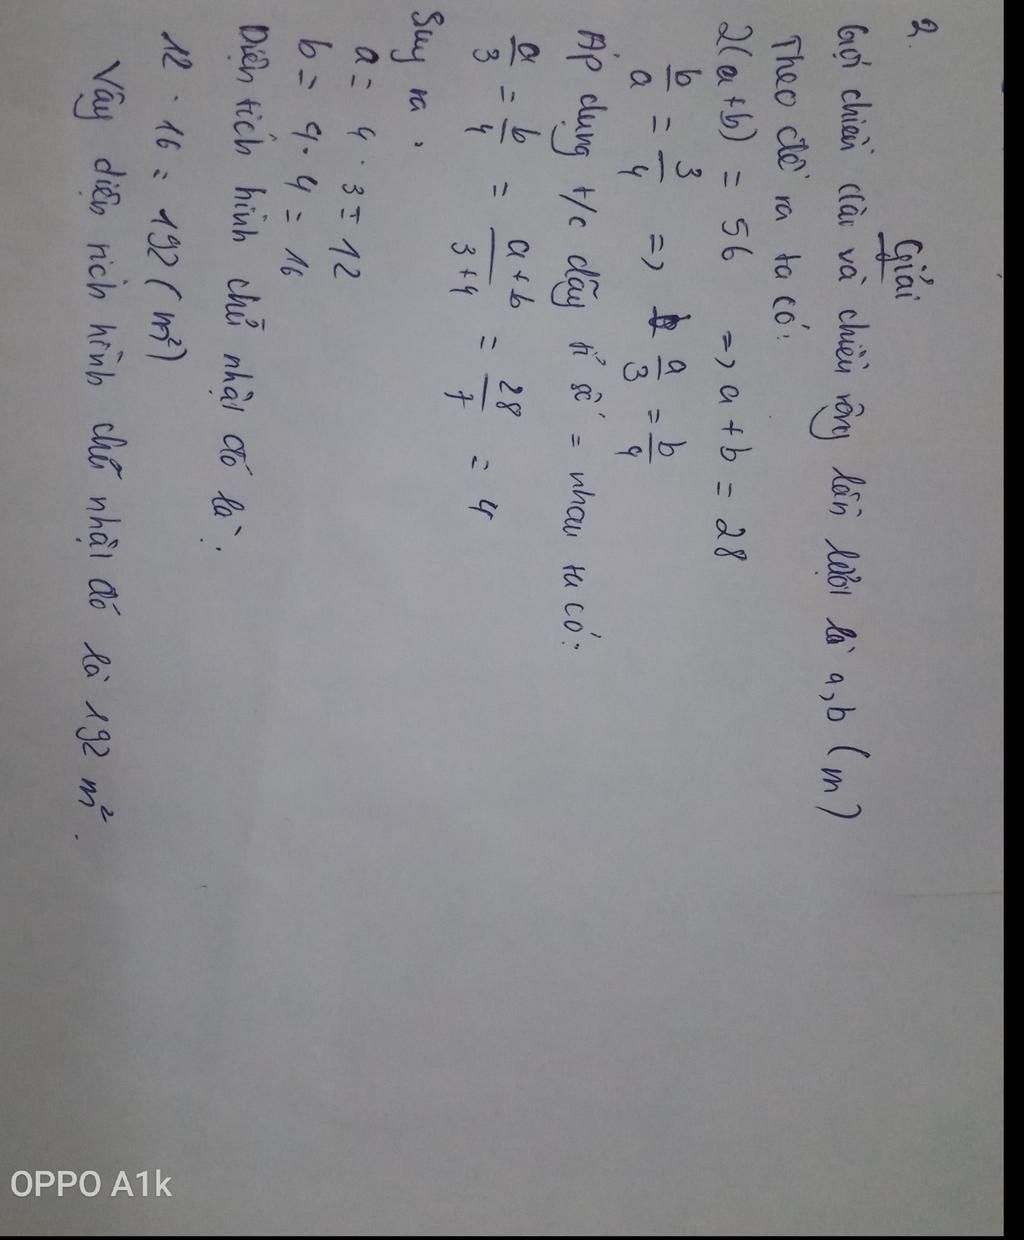 2.
Giải
Gọi chiều dài và chiều rộng lần lượt là a, b (m)
Theo đề ra ta có:
2(a+b) = 56 => a+b = 28
b/a = 3/4 => a/3 = b/4
Áp dụng t/c dãy tỉ số = nhau ta có:
a/3 = b/4 = a+b/3+4 = 28/7 = 4
Suy ra:
a = 4 . 3 = 12
b = 4 . 4 = 16
Diện tích hình chữ nhật đó là:
12 . 16 = 192 (m²)
Vậy diện tích hình chữ nhật đó là 192 m².
OPPO A1k